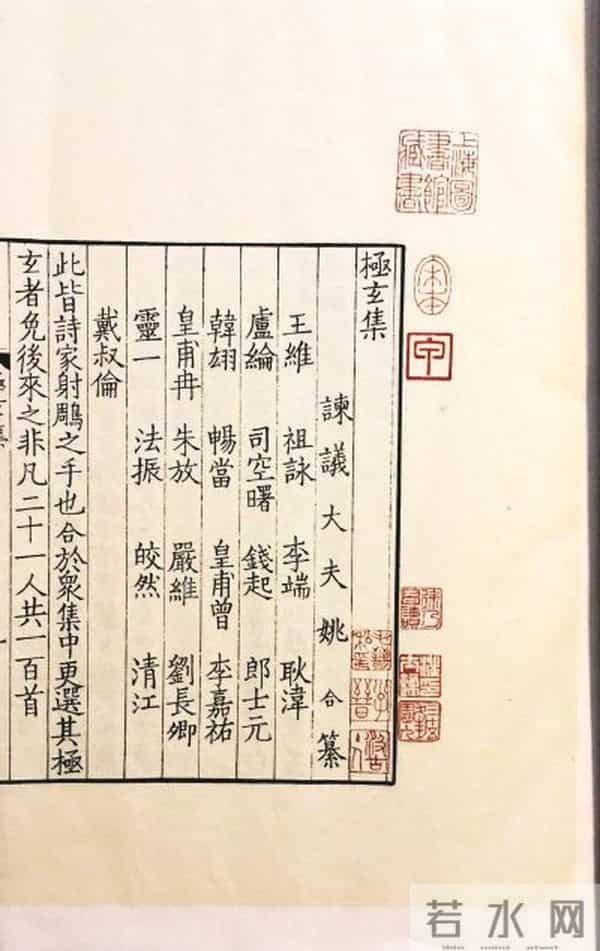 極玄集
諫議大夫姚合纂
王維 祖詠 李端 耿湋
盧綸 司空曙 錢起 郎士元
韓翃 暢當 皇甫曾 李嘉祐
皇甫冉 朱放 嚴維 劉長卿
靈一 法振 皎然 清江
戴叔倫
此皆詩家射鵰之手也合於衆集中更選其極
玄者免後來之非凡二十一人共一百首
上海圖書館藏書
宋本
若水网